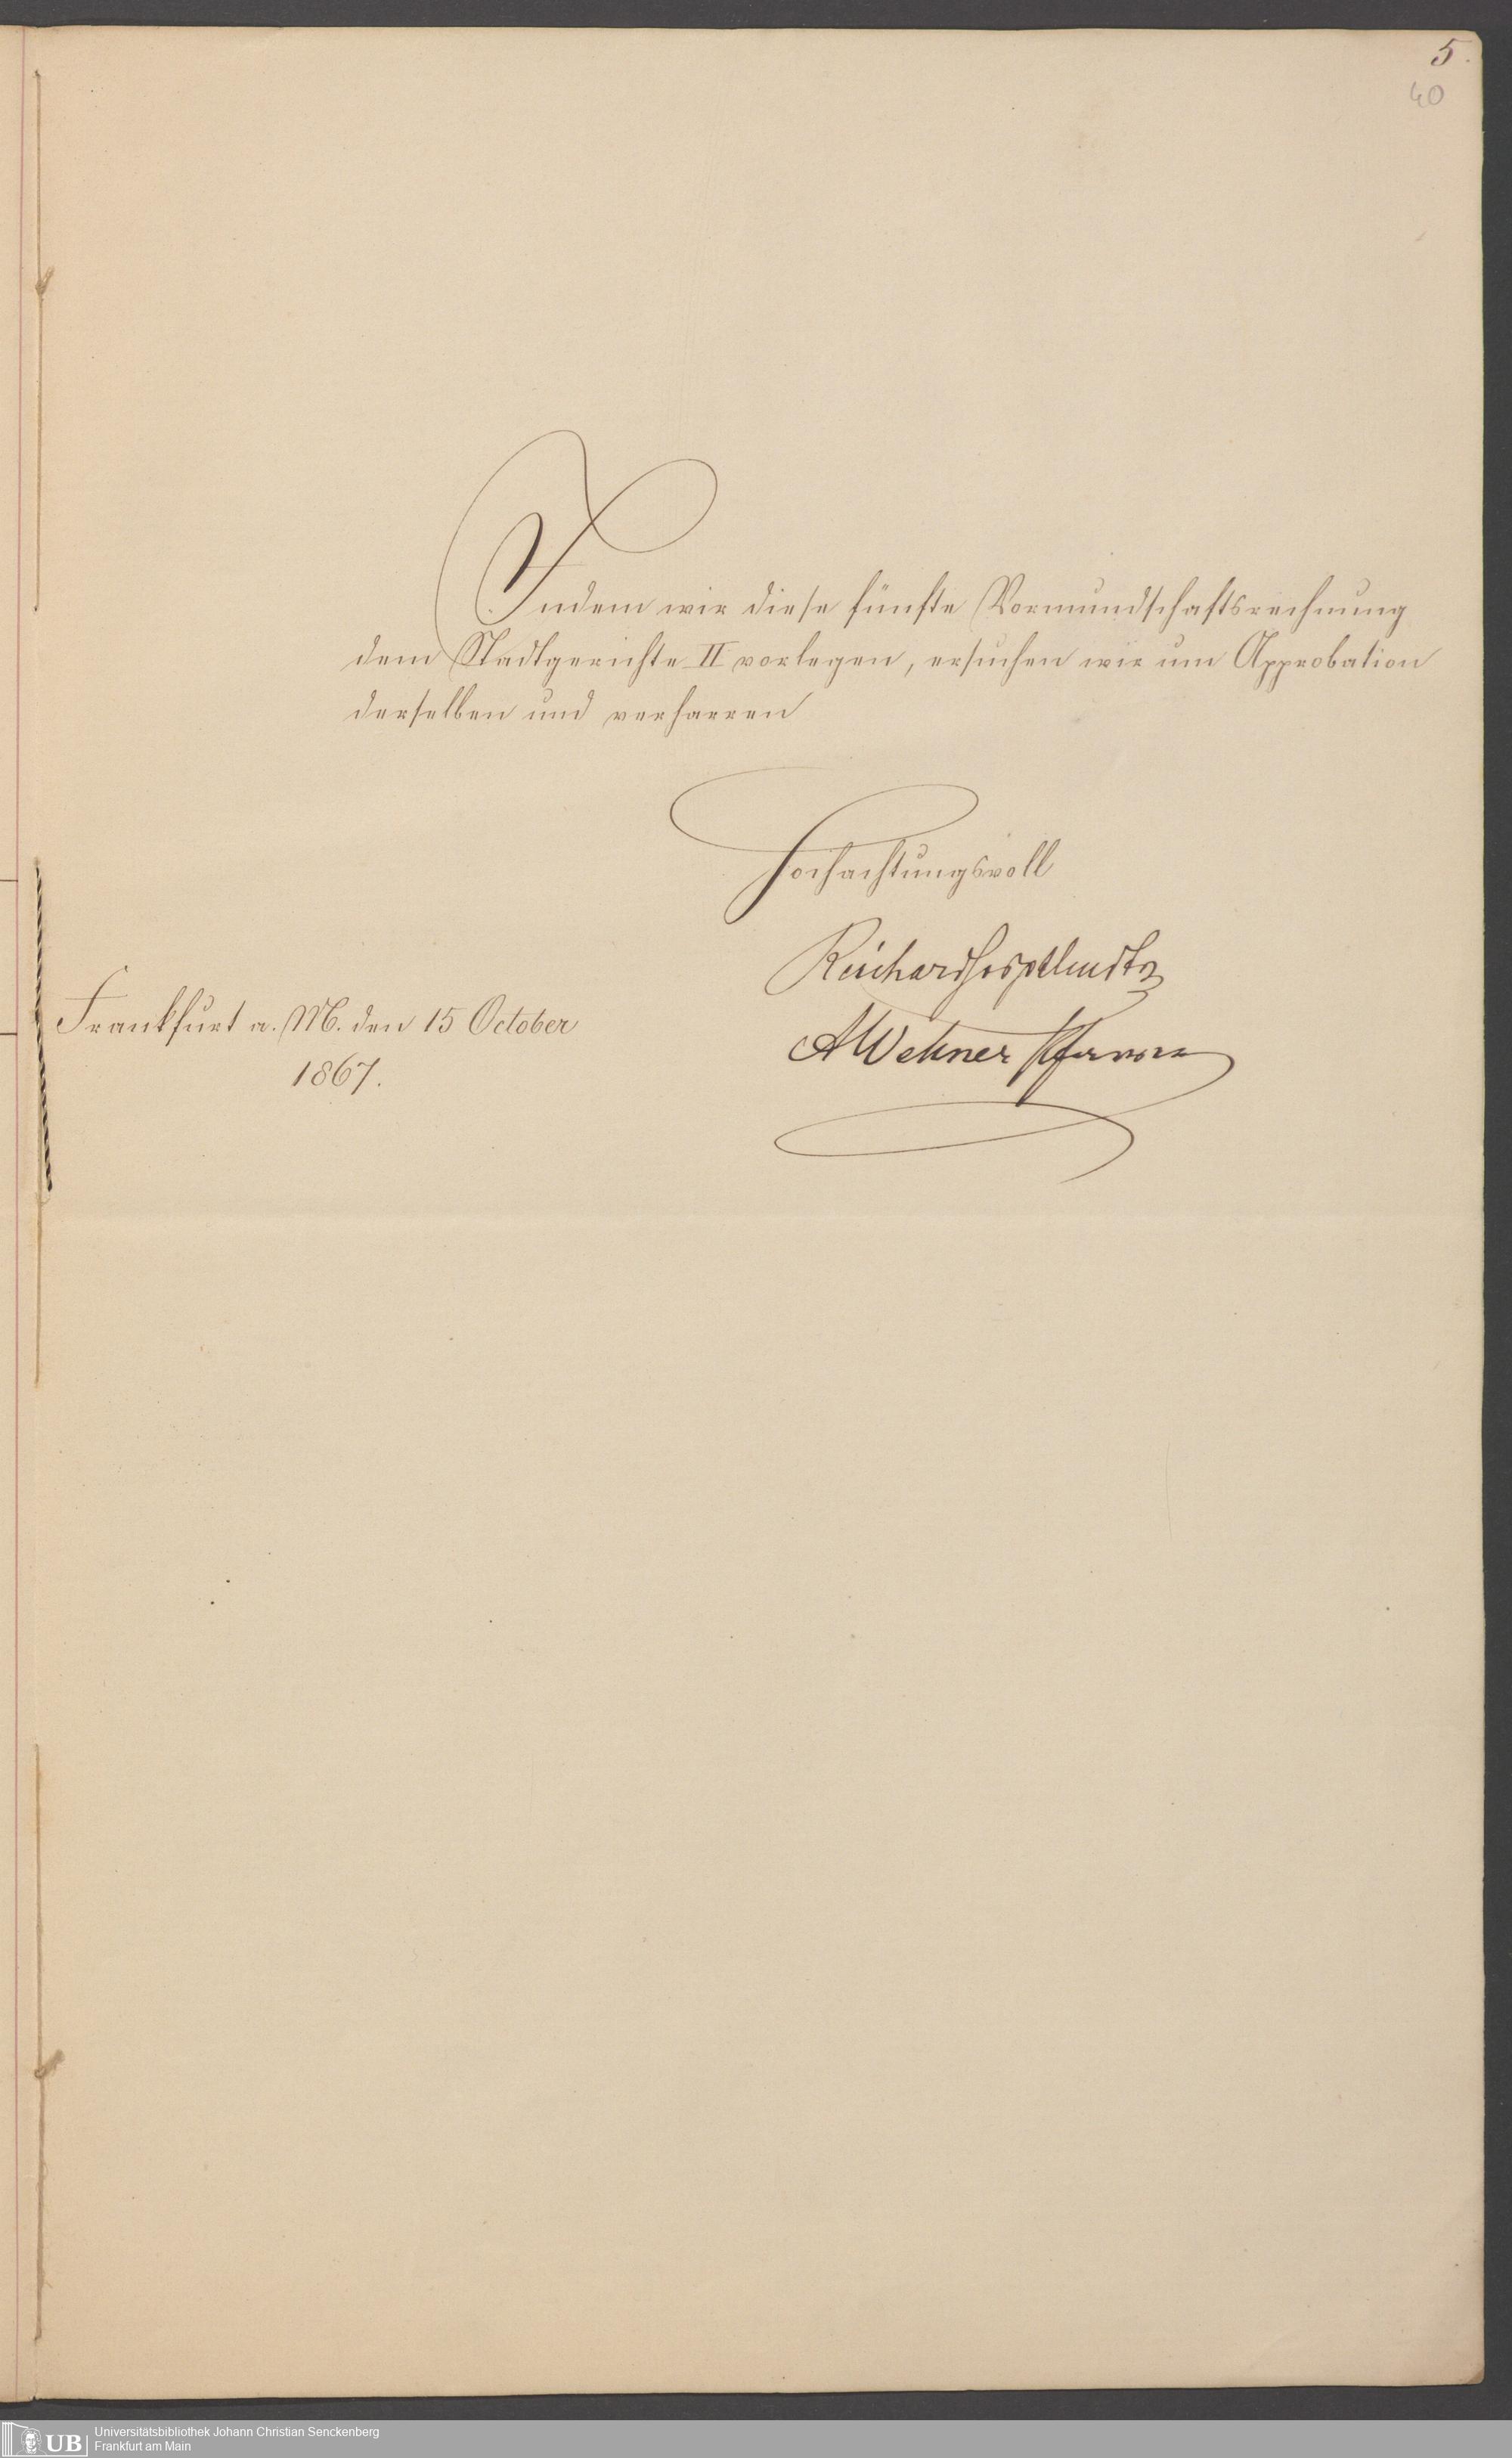 5.
40
Indem wir diese fünfte Vormundschaftsrechnung
dem Stadtgerichte II vorlegen, ersuchen wir um Approbation
derselben und verharren
Hochachtungsvoll
Frankfurt a. M. den 15 October
1867.
A Wehner
UB
Universitätsbibliothek Johann Christian Senckenberg
Frankfurt am Main